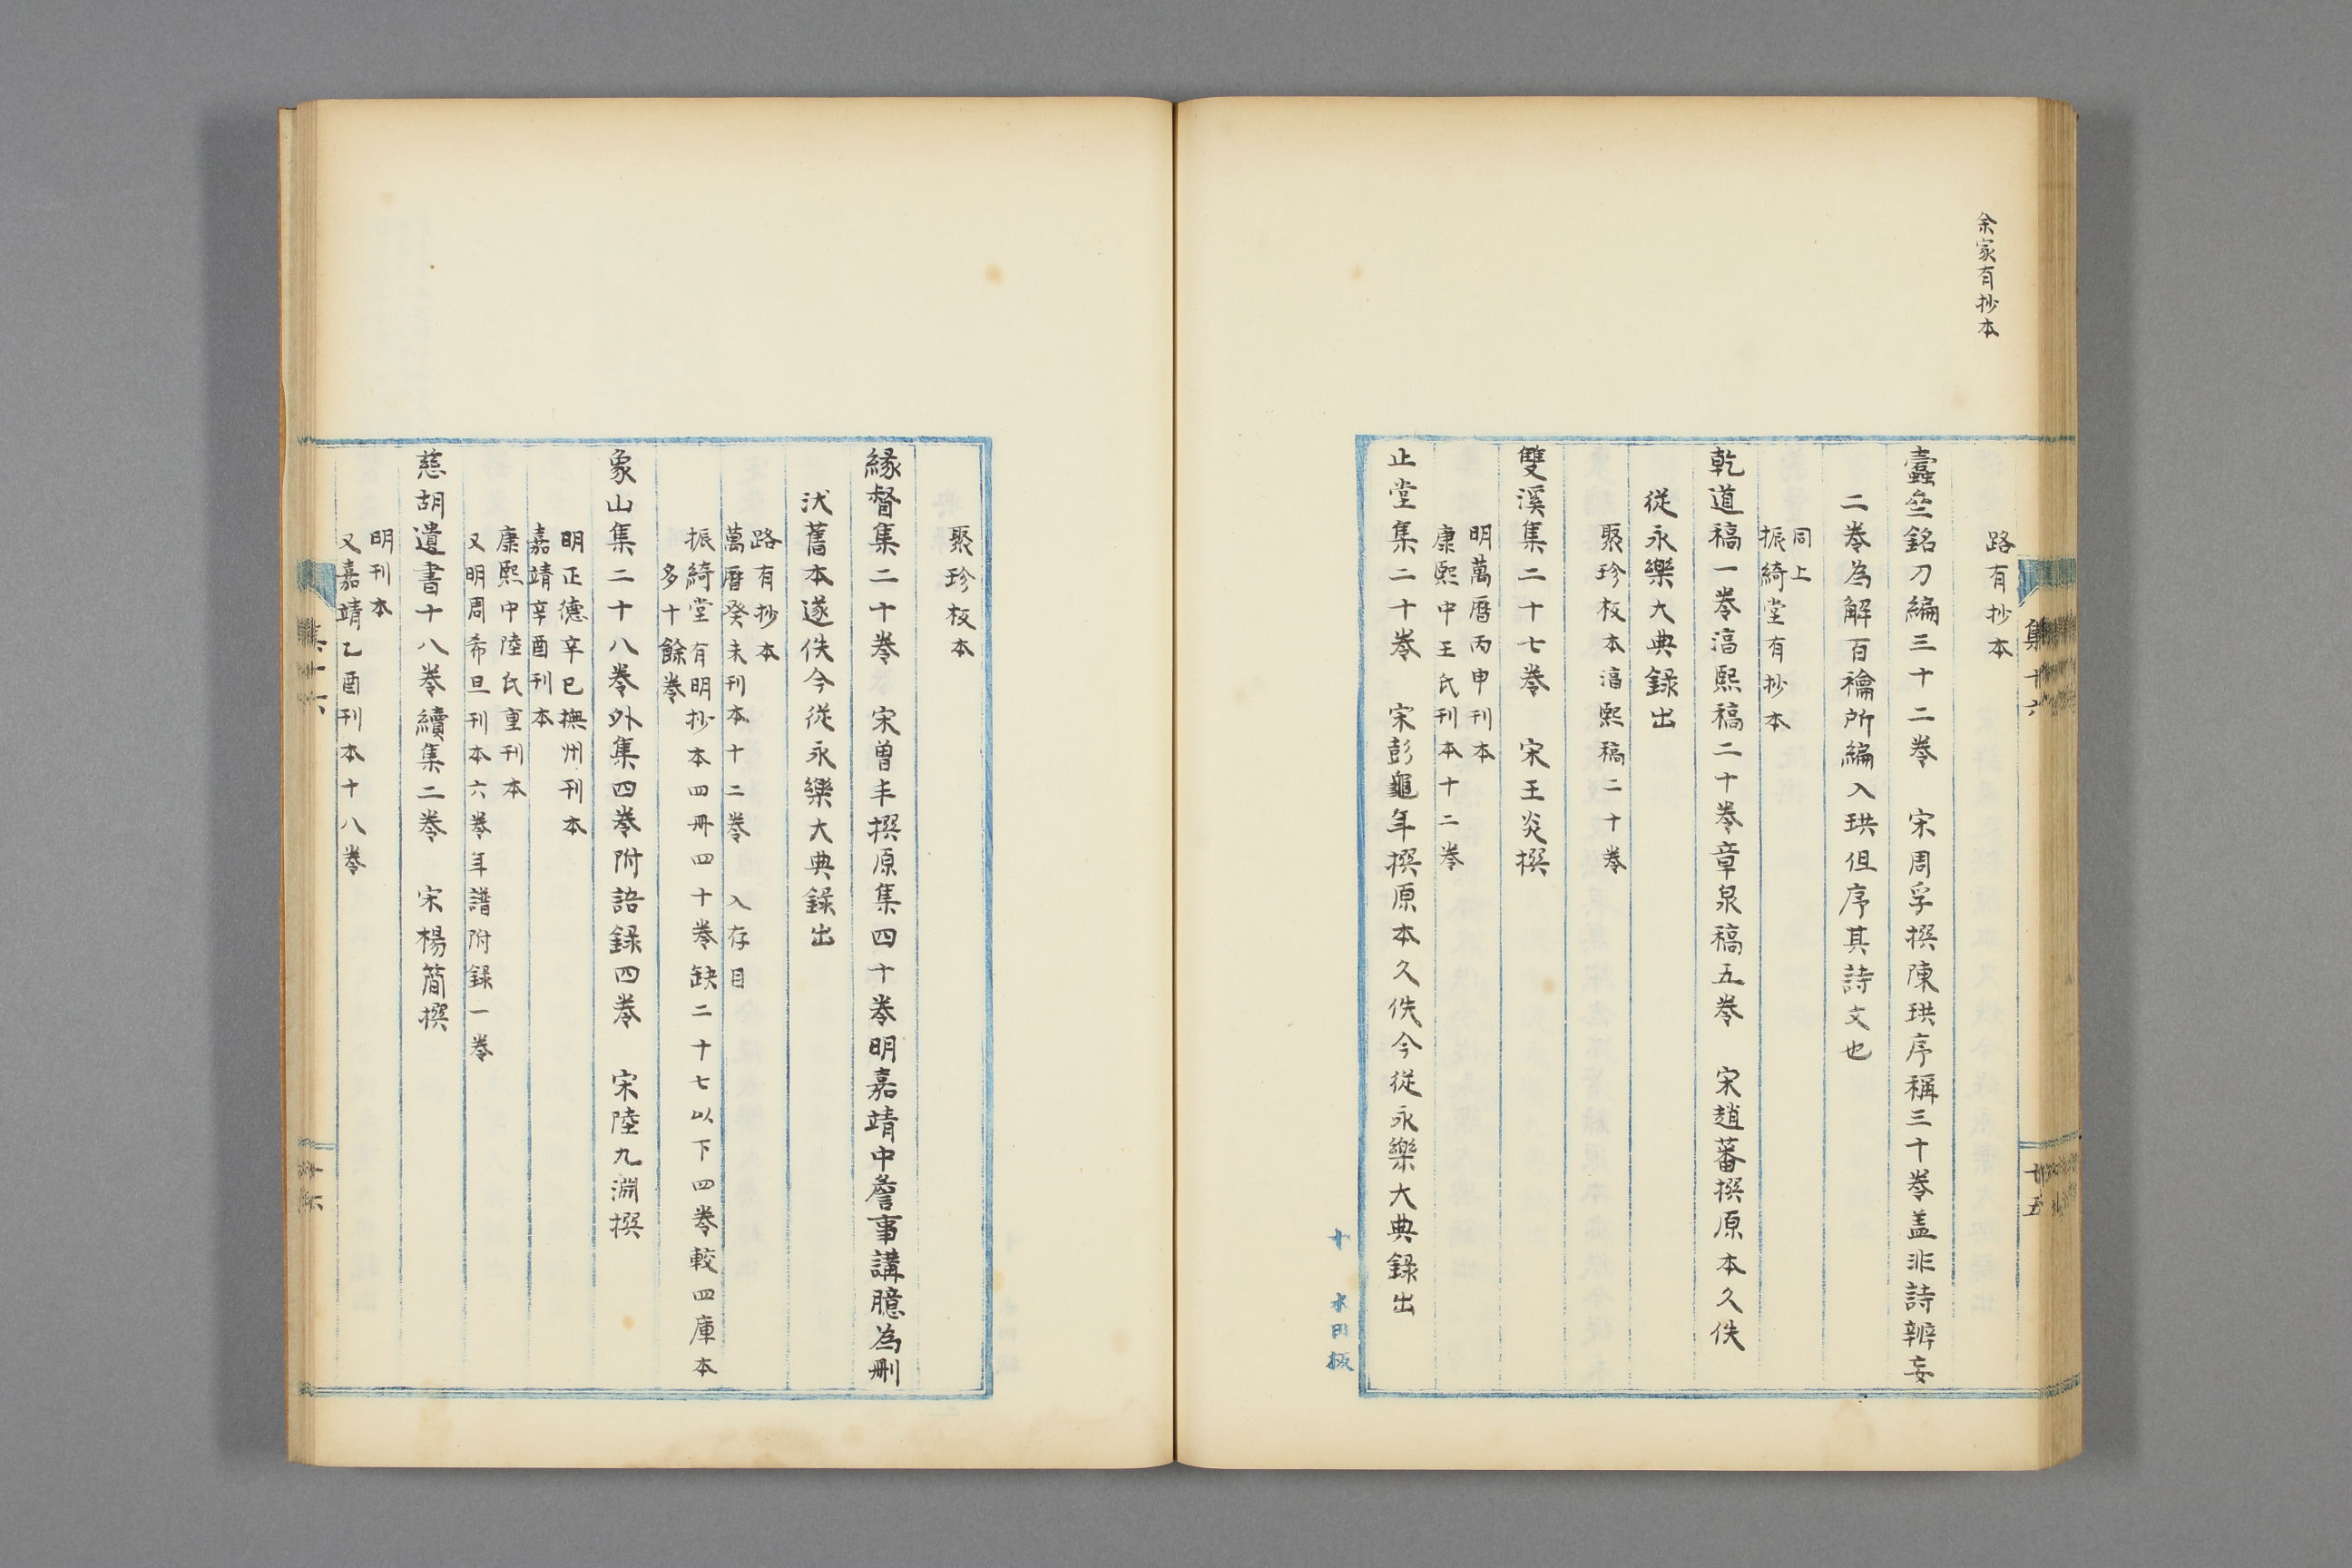 余家有抄本
集十六
廿五
路有抄本
蠹齋鉛刀編三十二卷　宋周孚撰陳珙序稱三十卷盖非詩辨妄
二卷為解百禴所編入珙但序其詩文也
同上
振綺堂有抄本
乾道稿一卷淳熙稿二十卷章泉稿五卷　宋趙蕃撰原本久佚
從永樂大典録出
聚珍板本淳熙稿二十卷
雙溪集二十七卷　宋王炎撰
明萬曆丙申刊本
康熙中王氏刊本十二卷
止堂集二十卷　宋彭龜年撰原本久佚今從永樂大典録出
十　水田板
聚珍板本
緣督集二十卷　宋曾丰撰原集四十卷明嘉靖中詹事講臆為刪
汰舊本遂佚今從永樂大典録出
路有抄本
萬曆癸未刊本十二卷　入存目
振綺堂有明抄本四冊四十卷缺二十七以下四卷較四庫本
多十餘卷
象山集二十八卷外集四卷附語録四卷　宋陸九淵撰
明正德辛巳撫州刊本
嘉靖辛酉刊本
康熙中陸氏重刊本
又明周希旦刊本六卷年譜附録一卷
慈胡遺書十八卷續集二卷　宋楊簡撰
明刊本
又嘉靖乙酉刊本十八卷
集十六